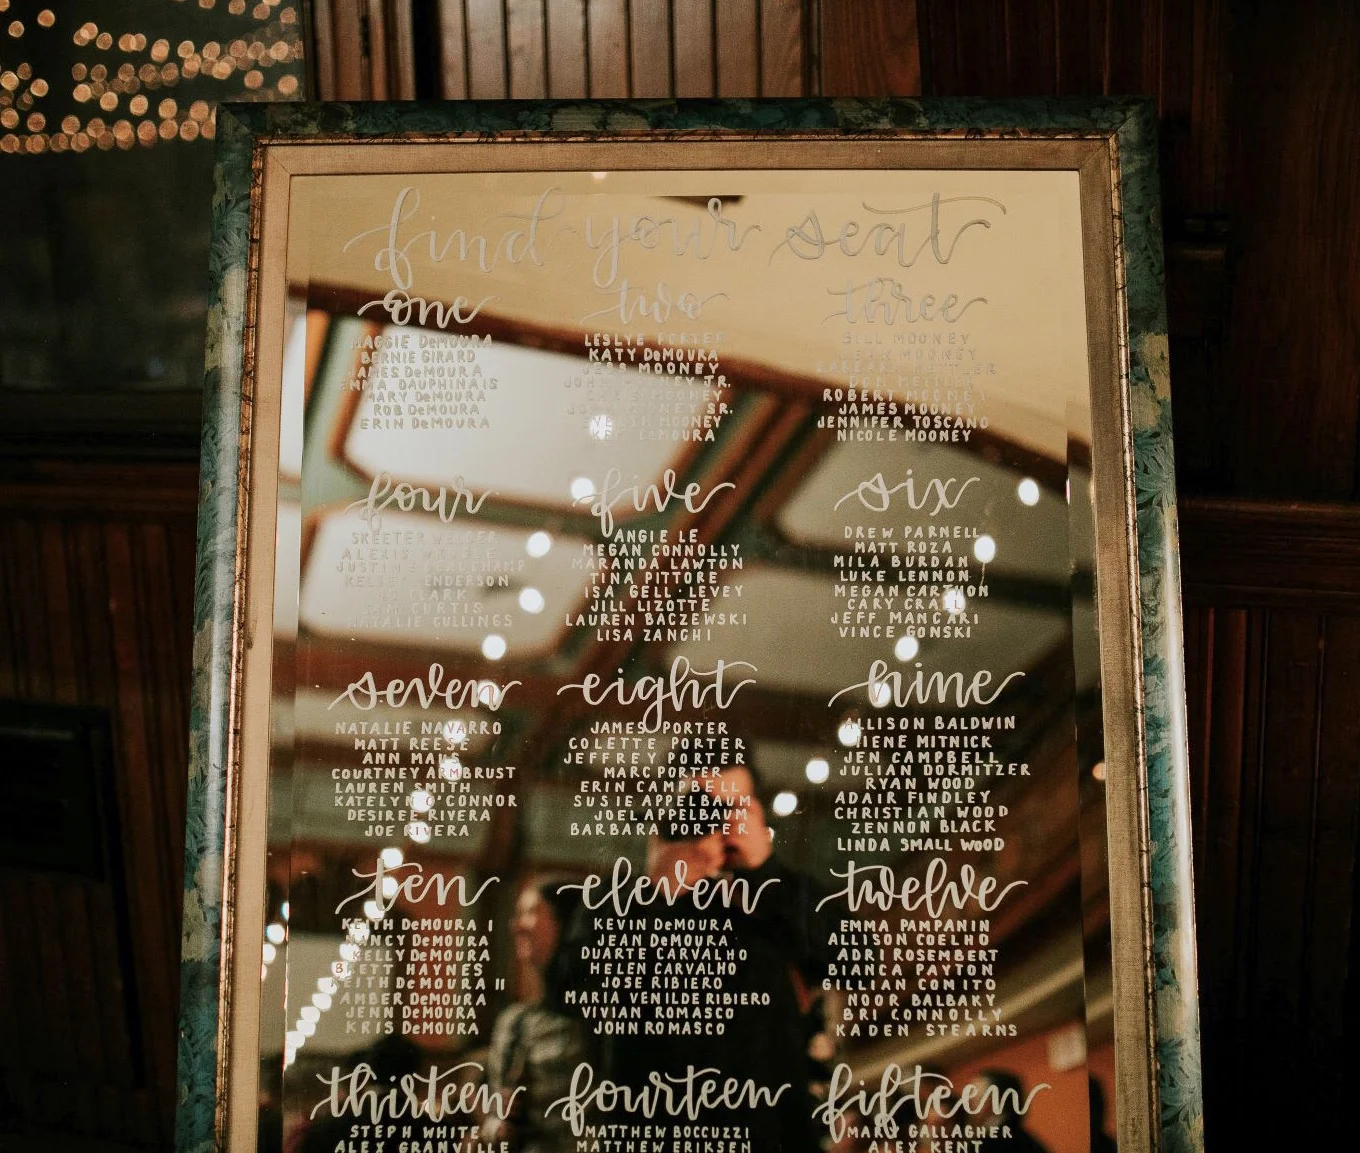 find your seat
one
MAGGIE DeMOURA
BERNIE GIRARD
JAMES DeMOURA
EMMA DAUPHINAIS
MARY DeMOURA
ROB DeMOURA
ERIN DeMOURA
two
LESLYE PORTER
KATY DeMOURA
JESS MOONEY
JOHN MOONEY JR.
MOONEY
SR.
MOONEY
DeMOURA
three
BILL MOONEY
MOONEY
ROBERT MOONEY
JAMES MOONEY
JENNIFER TOSCANO
NICOLE MOONEY
four
SKEETER
ALEXIS
JUSTIN BEAUCHAMP
KELSEY HENDERSON
CLARK
SAM CURTIS
NATALIE CULLINGS
five
ANGIE LE
MEGAN CONNOLLY
MARANDA LAWTON
TINA PITTORE
ISA GELL-LEVEY
JILL LIZOTTE
LAUREN BACZEWSKI
LISA ZANGHI
six
DREW PARNELL
MATT ROZA
MILA BURDAN
LUKE LENNON
MEGAN CARTHON
CARY CRALL
JEFF MANCARI
VINCE GONSKI
seven
NATALIE NAVARRO
MATT REESE
ANN MAUS
COURTNEY ARMBRUST
LAUREN SMITH
KATELYN O'CONNOR
DESIREE RIVERA
JOE RIVERA
eight
JAMES PORTER
COLETTE PORTER
JEFFREY PORTER
MARC PORTER
ERIN CAMPBELL
SUSIE APPELBAUM
JOEL APPELBAUM
BARBARA PORTER
nine
ALLISON BALDWIN
MITNICK
JEN CAMPBELL
JULIAN DORMITZER
RYAN WOOD
ADAIR FINDLEY
CHRISTIAN WOOD
ZENNON BLACK
LINDA SMALL WOOD
ten
KEITH DeMOURA I
NANCY DeMOURA
KELLY DeMOURA
BRETT HAYNES
KEITH DeMOURA II
AMBER DeMOURA
JENN DeMOURA
KRIS DeMOURA
eleven
KEVIN DeMOURA
JEAN DeMOURA
DUARTE CARVALHO
HELEN CARVALHO
JOSE RIBIERO
MARIA VENILDE RIBIERO
VIVIAN ROMASCO
JOHN ROMASCO
twelve
EMMA PAMPANIN
ALLISON COELHO
ADRI ROSEMBERT
BIANCA PAYTON
GILLIAN COMITO
NOOR BALBAKY
BRI CONNOLLY
KADEN STEARNS
thirteen
STEPH WHITE
ALEX GRANVILLE
fourteen
MATTHEW BOCCUZZI
MATTHEW ERIKSEN
fifteen
MARY GALLAGHER
ALEX KENT